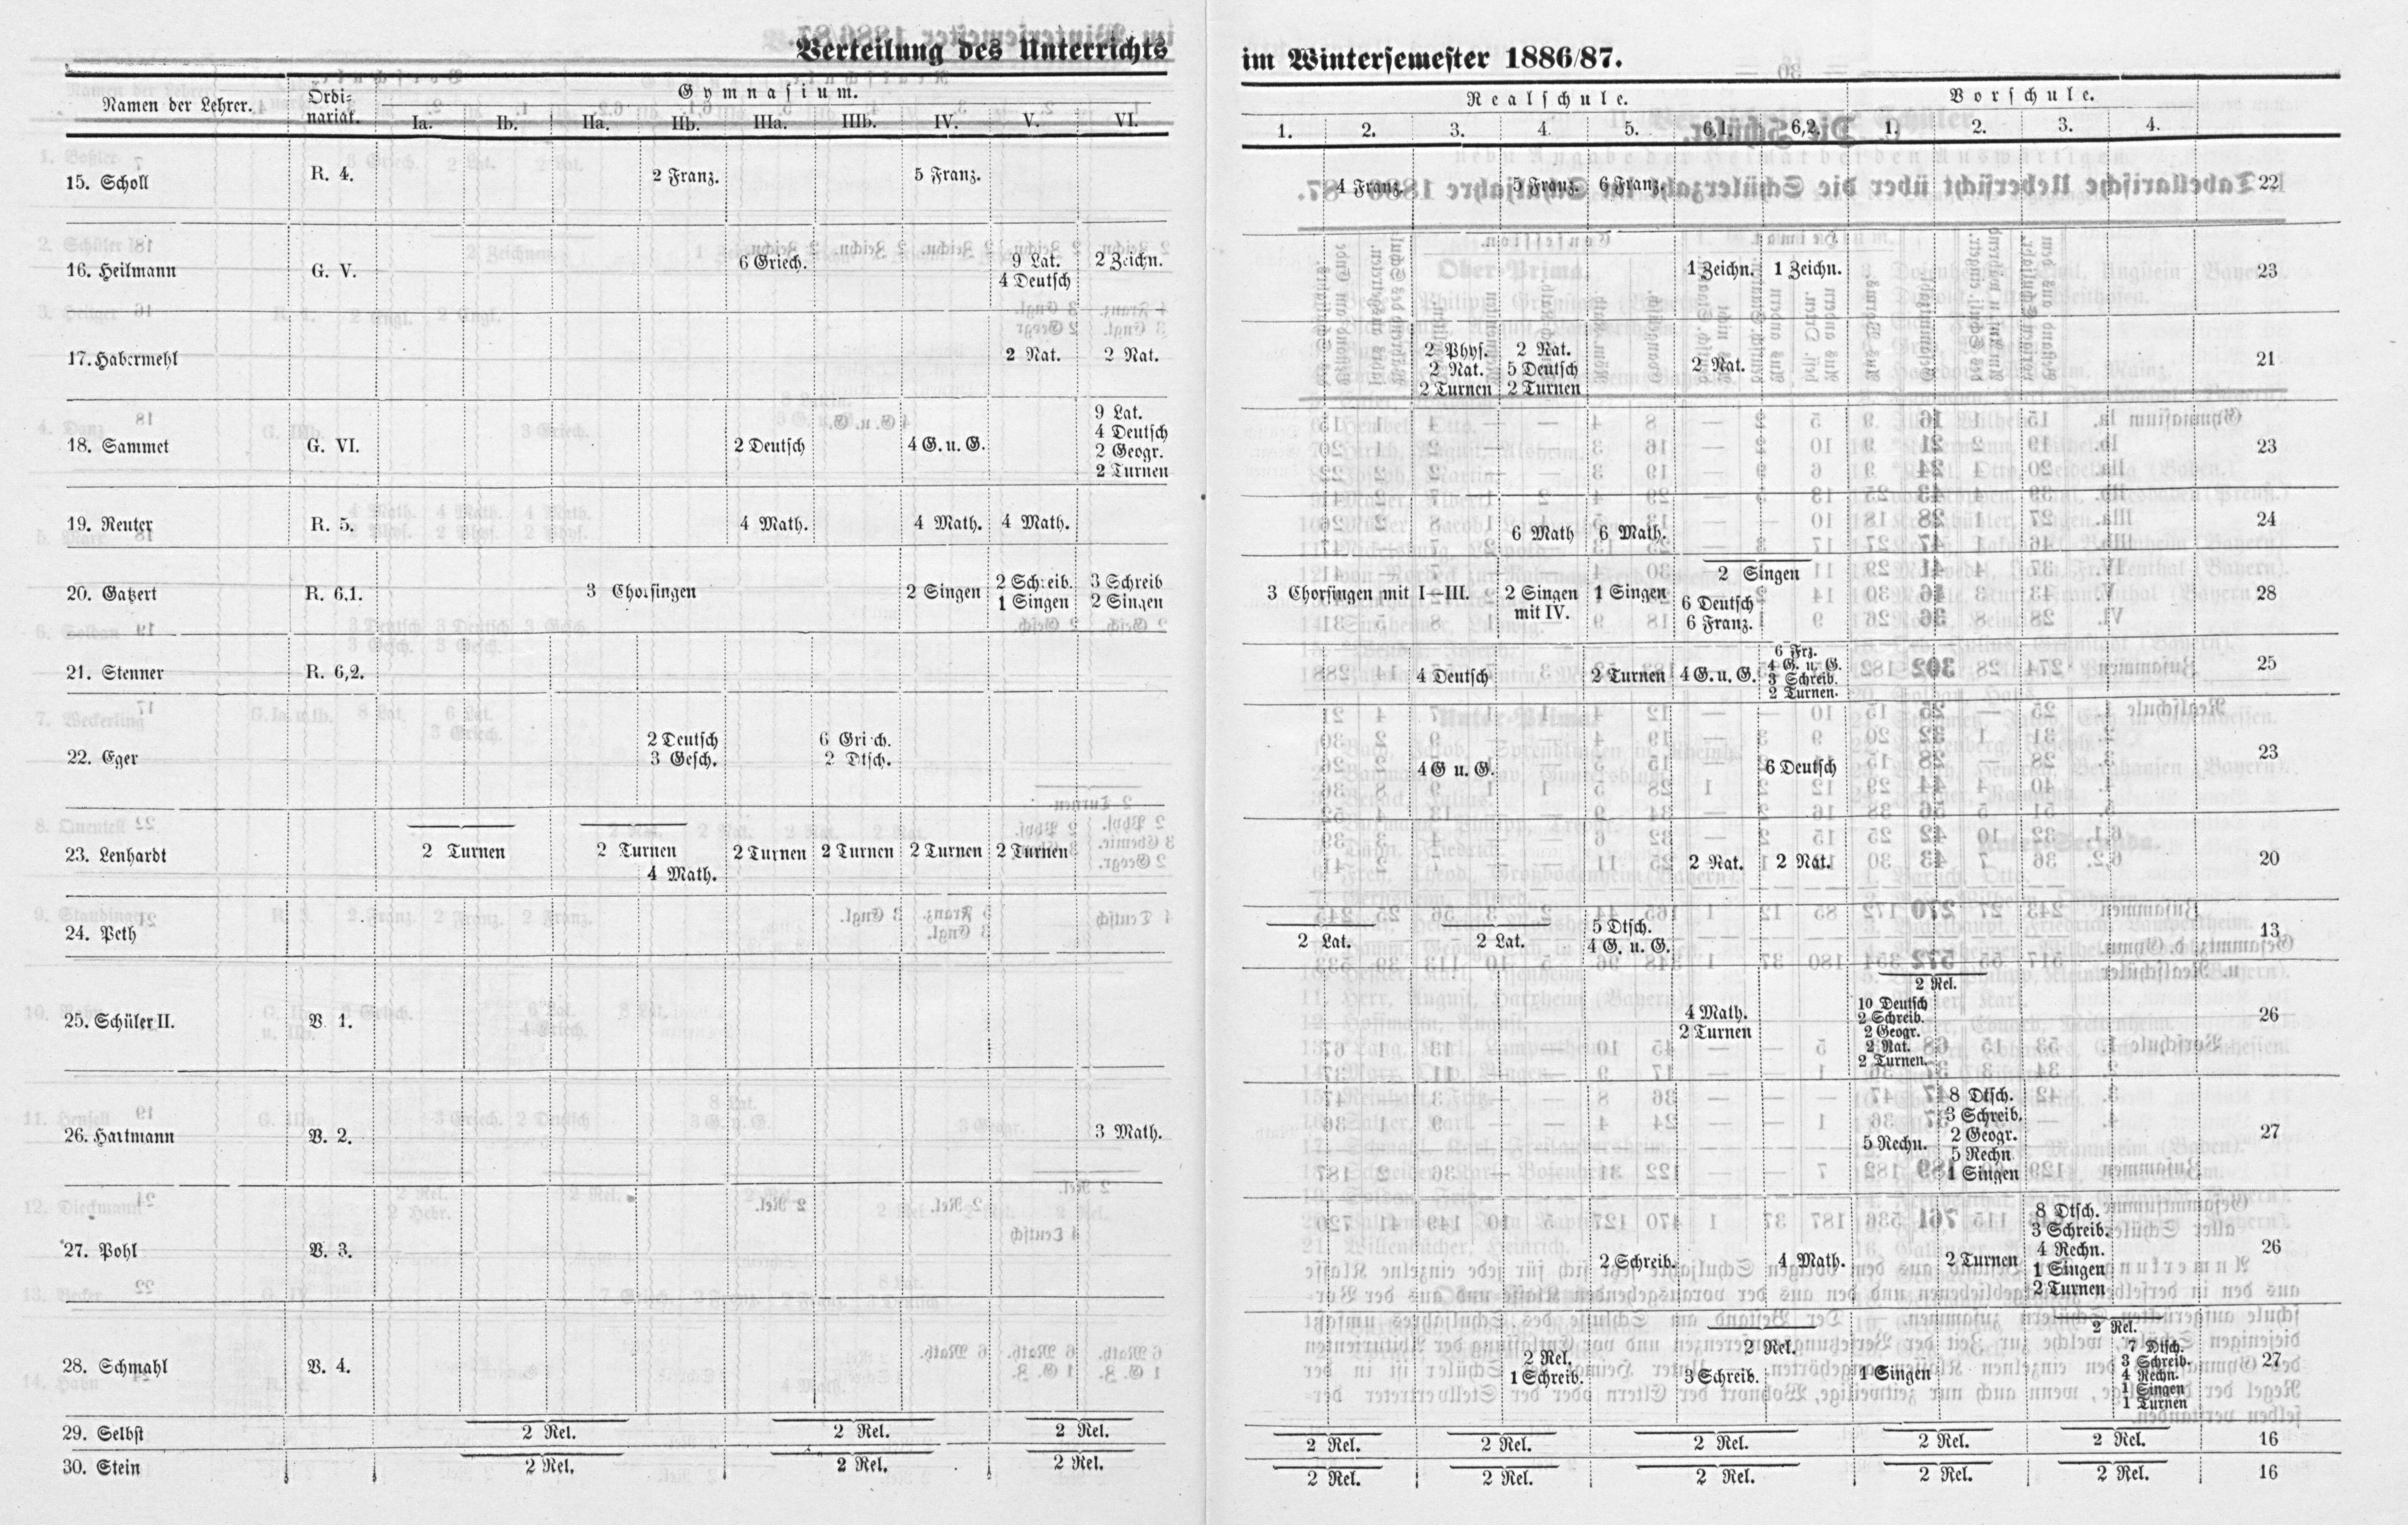 Verteilung des Unterrichts im Wintersemester 1886/87.
Namen der Lehrer. Ordi- Gymnasium. Realschule. Vorschule.
nariat. Ia. Ib. IIa. IIb. IIIa. IIIb. IV. V. VI. 1. 2. 3. 4. 5. 6,1. 6,2. 1. 2. 3. 4.
15. Scholl R. 4. 2 Franz. 5 Franz. 4 Franz. 5 Franz. 6 Franz. 22
16. Heilmann G. V. 6 Griech. 9 Lat. 2 Zeichn. 1 Zeichn. 1 Zeichn. 23
4 Deutsch
17. Habermehl 2 Nat. 2 Nat. 2 Phys. 2 Nat. 2 Nat. 21
2 Nat. 5 Deutsch
2 Turnen 2 Turnen
18. Sammet G. VI. 2 Deutsch 4 G. u. G. 9 Lat. 23
4 Deutsch
2 Geogr.
2 Turnen
19. Reuter R. 5. 4 Math. 4 Math. 4 Math. 6 Math 6 Math. 24
20. Gatzert R. 6,1. 3 Chorsingen 2 Singen 2 Schreib. 3 Schreib 3 Chorsingen mit I—III. 2 Singen 1 Singen 2 Singen 28
1 Singen 2 Singen mit IV. 6 Deutsch
6 Franz.
21. Stenner R. 6,2. 4 Deutsch 2 Turnen 4 G. u. G. 6 Frz. 25
4 G. u. G.
3 Schreib.
2 Turnen.
22. Eger 2 Deutsch 6 Griech. 4 G u. G. 6 Deutsch 23
3 Gesch. 2 Dtsch.
23. Lenhardt 2 Turnen 2 Turnen 2 Turnen 2 Turnen 2 Turnen 2 Turnen 2 Nat. 2 Nat. 20
4 Math.
24. Peth 2 Lat. 2 Lat. 5 Dtsch. 13
4 G. u. G.
25. Schüler II. V. 1. 4 Math. 2 Rel. 26
2 Turnen 10 Deutsch
2 Schreib.
2 Geogr.
2 Nat.
2 Turnen.
26. Hartmann V. 2. 3 Math. 5 Rechn. 8 Dtsch. 27
3 Schreib.
2 Geogr.
5 Rechn
1 Singen
27. Pohl V. 3. 2 Schreib. 4 Math. 2 Turnen 8 Dtsch. 26
3 Schreib.
4 Rechn.
1 Singen
2 Turnen
28. Schmahl V. 4. 2 Rel. 2 Rel. 1 Singen 2 Rel. 27
1 Schreib. 3 Schreib. 7 Dtsch.
3 Schreib.
4 Rechn.
1 Singen
1 Turnen
29. Selbst 2 Rel. 2 Rel. 2 Rel. 2 Rel. 2 Rel. 2 Rel. 2 Rel. 2 Rel. 16
30. Stein 2 Rel. 2 Rel. 2 Rel. 2 Rel. 2 Rel. 2 Rel. 2 Rel. 2 Rel. 16